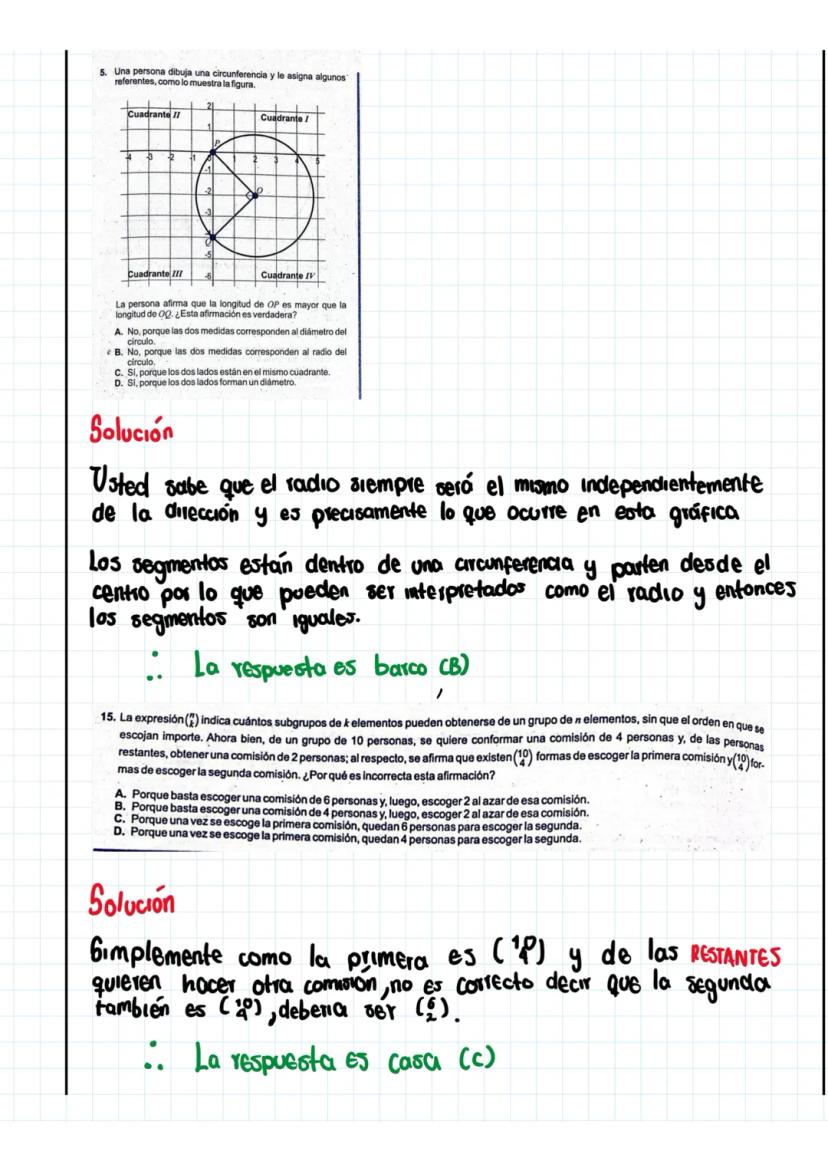 5. Una persona dibuja una circunferencia y le asigna algunos
referentes, como lo muestra la figura.
Cuadrante II
2
Cuadrante I
1
P
-4 -3 -2 -1 1 2 3 4 5
-1
-2
O
-3
Q
-5
Cuadrante III
-6
Cuadrante IV
La persona afirma que la longitud de OP es mayor que la
longitud de OQ. ¿Esta afirmación es verdadera?
A. No, porque las dos medidas corresponden al diámetro del
círculo.
B. No, porque las dos medidas corresponden al radio del
círculo.
C. Sí, porque los dos lados están en el mismo cuadrante.
D. Sí, porque los dos lados forman un diámetro.
Solución
Usted sabe que el radio siempre será el mismo independientemente
de la dirección y es precisamente lo que ocurre en esta gráfica
Los segmentos están dentro de una circunferencia y parten desde el
centro por lo que pueden ser interpretados como el radio y entonces
los segmentos son iguales.
∴ La respuesta es barco (B)
15. La expresión (n k) indica cuántos subgrupos de k elementos pueden obtenerse de un grupo de n elementos, sin que el orden en que se
escojan importe. Ahora bien, de un grupo de 10 personas, se quiere conformar una comisión de 4 personas y, de las personas
restantes, obtener una comisión de 2 personas; al respecto, se afirma que existen (10 4) formas de escoger la primera comisión y (10 4) for-
mas de escoger la segunda comisión. ¿Por qué es incorrecta esta afirmación?
A. Porque basta escoger una comisión de 6 personas y, luego, escoger 2 al azar de esa comisión.
B. Porque basta escoger una comisión de 4 personas y, luego, escoger 2 al azar de esa comisión.
C. Porque una vez se escoge la primera comisión, quedan 6 personas para escoger la segunda.
D. Porque una vez se escoge la primera comisión, quedan 4 personas para escoger la segunda.
Solución
Simplemente como la primera es (10 4) y de las RESTANTES
quieren hacer otra comisión, no es correcto decir que la segunda
también es (10 4), deberia ser (6 2).
∴ La respuesta es casa (C)